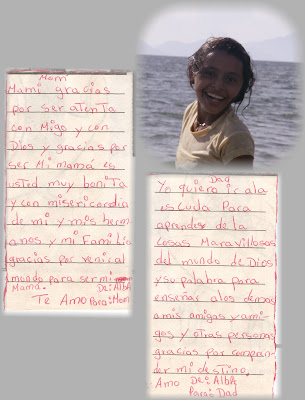 Mom
Mami gracias
por ser atenta
con Migo y con
Dios y gracias por
ser Mi mamá es
usted muy bonita
y con misericordia
de mi y mis herm
anos y mi Familia
gracias por venir al
mondo para ser mi
Mama. De: AlbA
Te Amo Para: Mom
Dad
Yo quiero ir ala
escuela Para
aprender de la
cosas Maravillosas
del mundo de Dios
y su palabra para
enseñar alos demas
amis amigas y ami-
gos y otras personas
gracias por compan
der mi destino,
Amo De: AlbA
Para: Dad